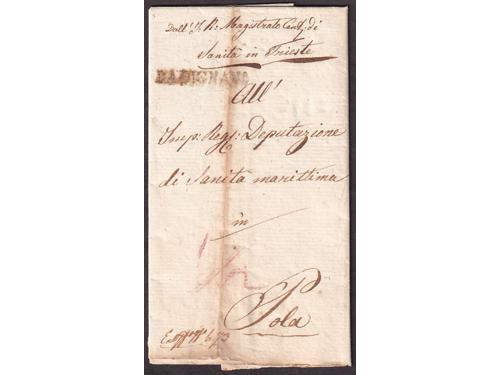 Dall' I. R. Magistrato Cent. di
Sanità in Trieste
All'
Imp: Reg: Deputazione
di Sanità marittima
in
Pola